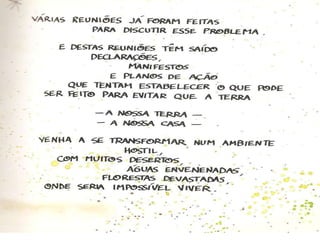 VÁRIAS REUNIÕES JÁ FORAM FEITAS
PARA DISCUTIR ESSE PROBLEMA.
E DESTAS REUNIÕES TÊM SAÍDO
DECLARAÇÕES,
MANIFESTOS
E PLANOS DE AÇÃO
QUE TENTAM ESTABELECER O QUE PODE
SER FEITO PARA EVITAR QUE A TERRA
— A NOSSA TERRA —
— A NOSSA CASA —
VENHA A SE TRANSFORMAR NUM AMBIENTE
HOSTIL,
COM MUITOS DESERTOS,
ÁGUAS ENVENENADAS,
FLORESTAS DEVASTADAS,
ONDE SERIA IMPOSSÍVEL VIVER.